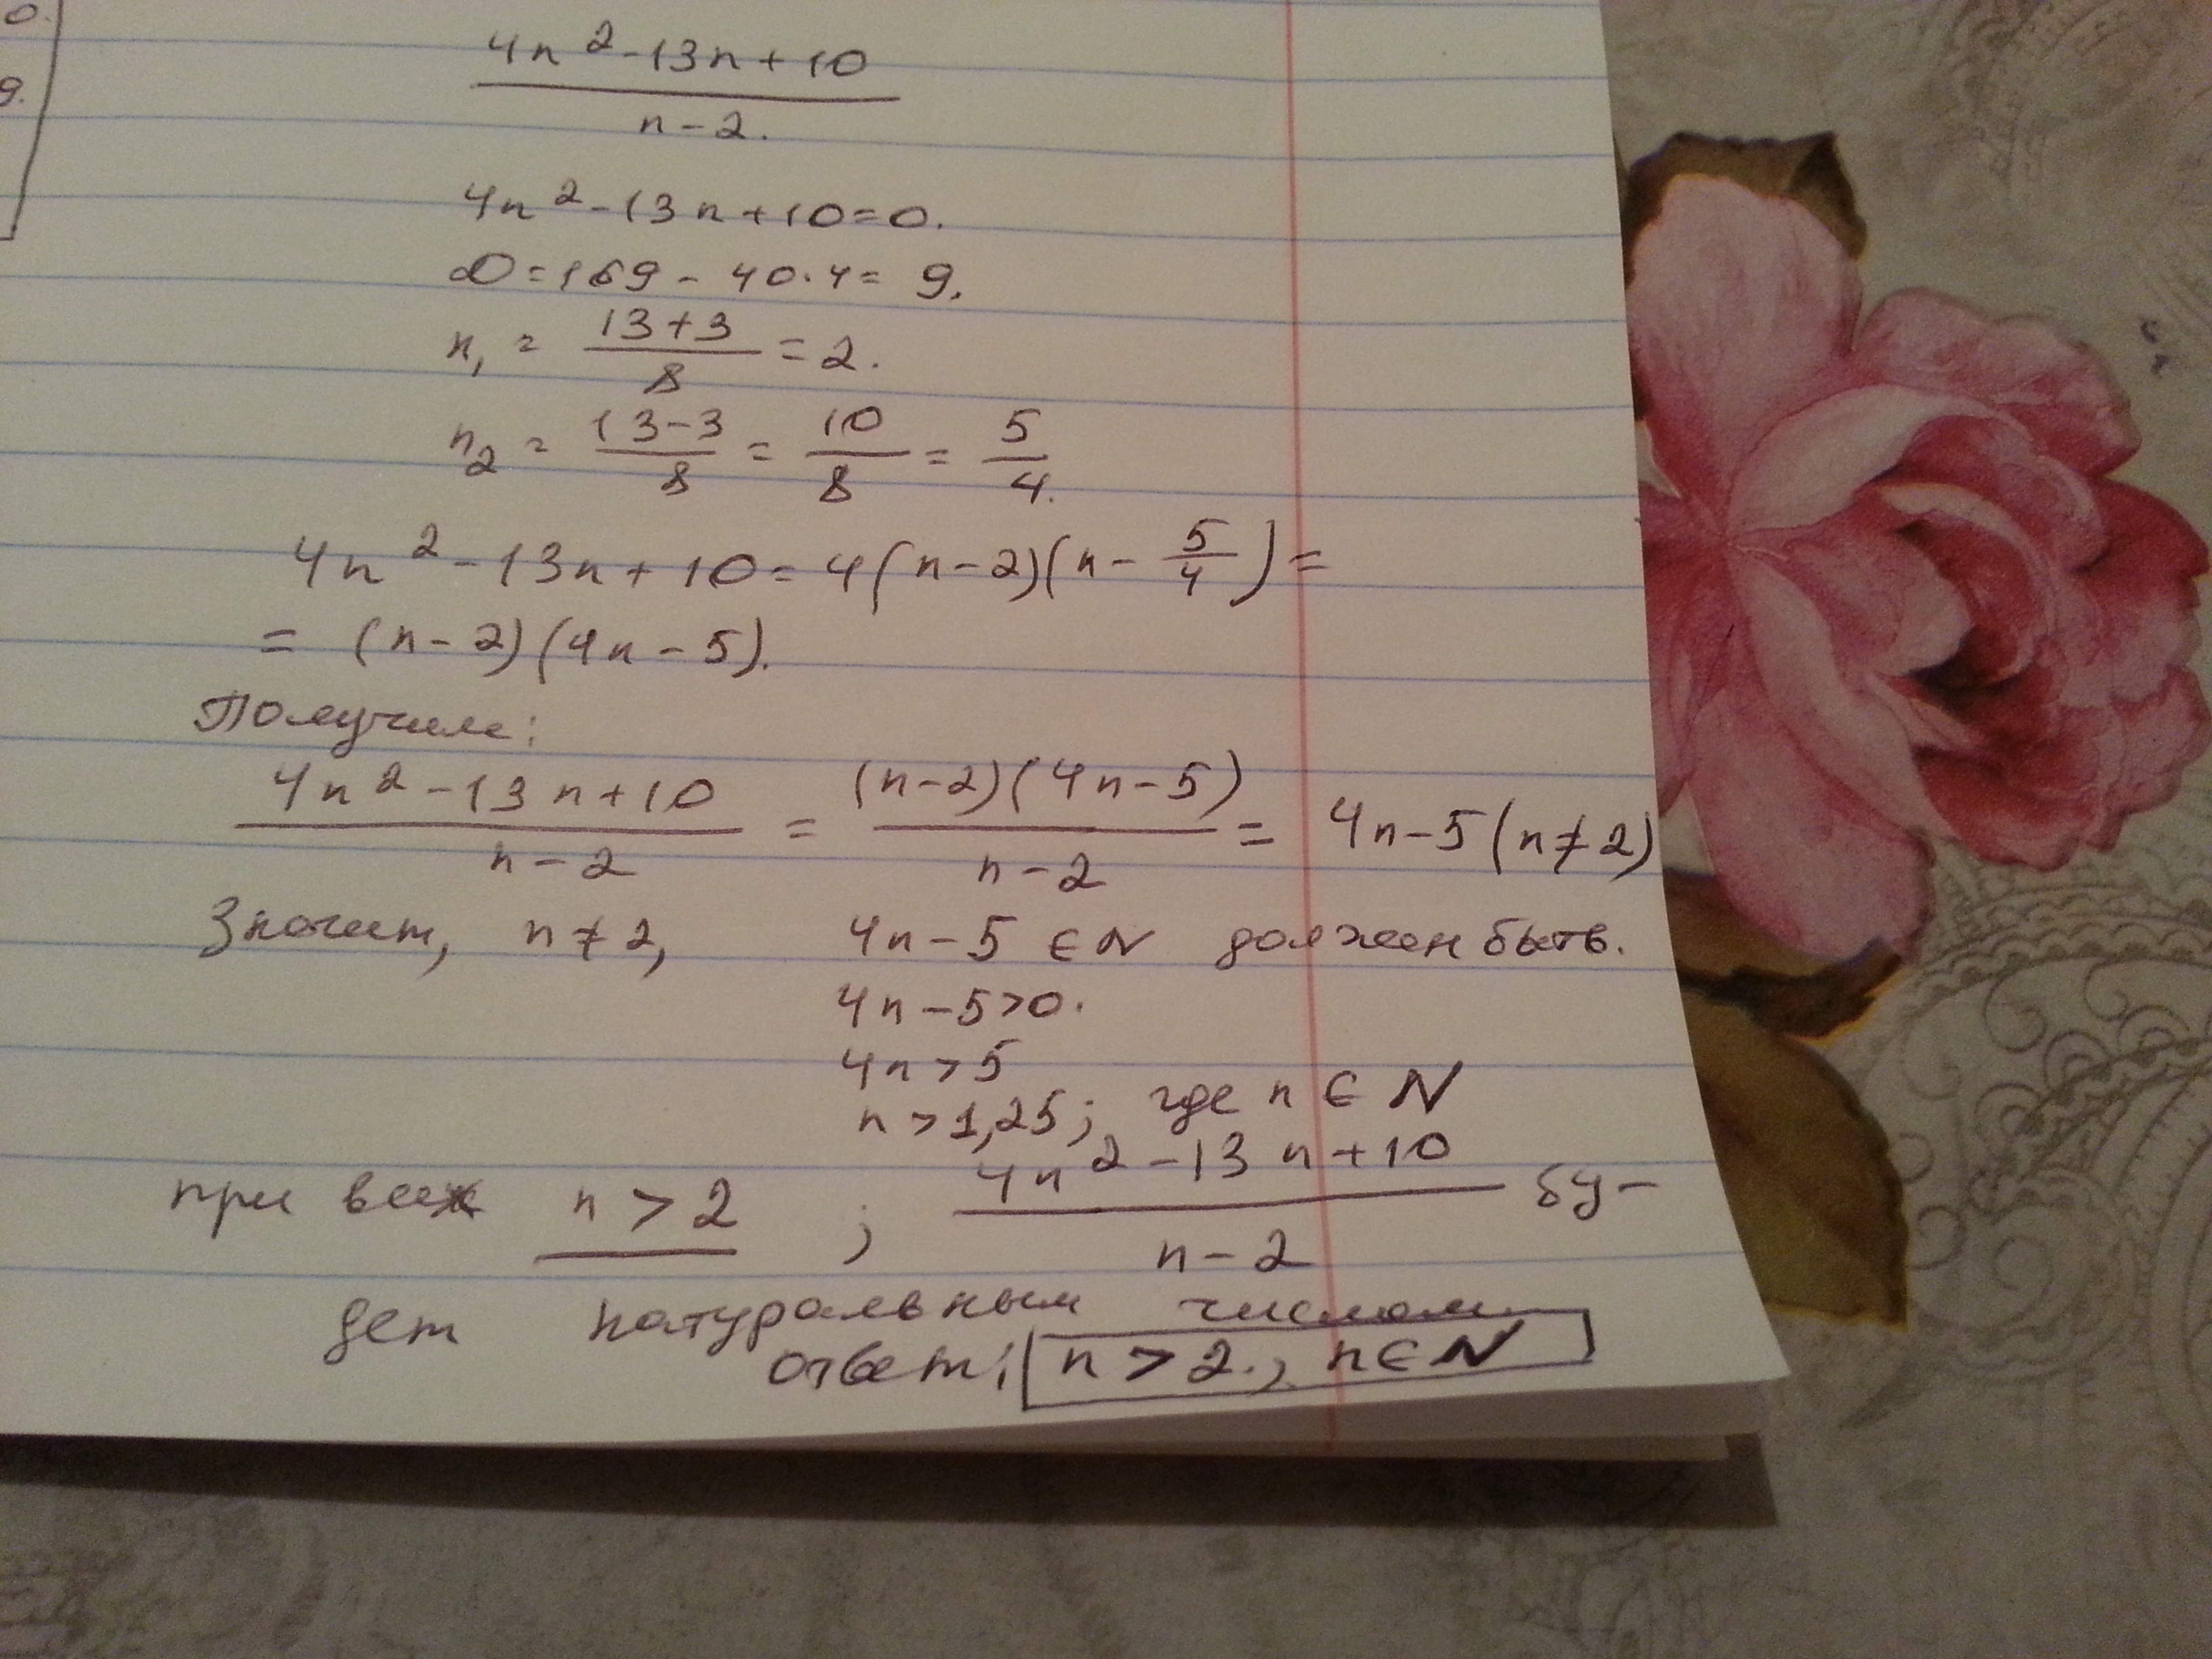 0.
9.
4n² - 13n + 10 / n - 2.
4n² - 13n + 10 = 0.
D = 169 - 40·4 = 9.
n₁ = 13+3 / 8 = 2.
n₂ = 13-3 / 8 = 10 / 8 = 5 / 4.
4n² - 13n + 10 = 4(n-2)(n - 5/4) =
= (n-2)(4n-5).
Получим:
4n² - 13n + 10 / n - 2 = (n-2)(4n-5) / n - 2 = 4n-5 (n≠2)
Значит, n≠2, 4n-5 ∈ N должен быть.
4n-5>0.
4n>5
n>1,25; где n ∈ N
при всех n>2; 4n² - 13n + 10 / n - 2 бу-
дет натуральным числом.
ответ: n>2., n∈N